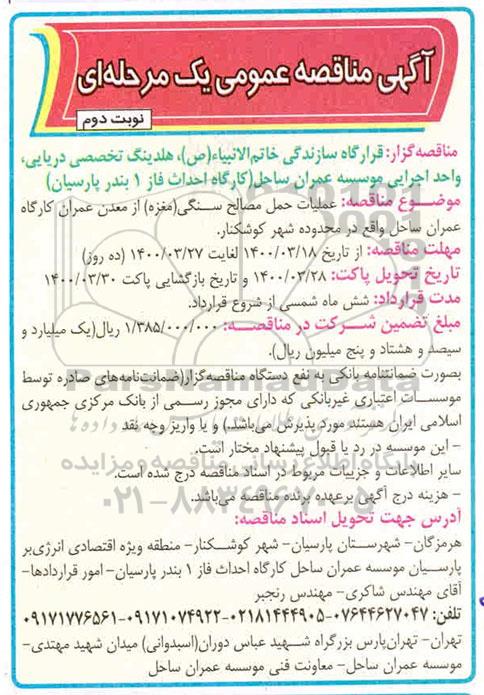 آگهی مناقصه عمومی یک مرحله‌ای
نوبت دوم
مناقصه‌گزار: قرارگاه سازندگی خاتم‌الانبیاء(ص)، هلدینگ تخصصی دریایی،
واحد اجرایی موسسه عمران ساحل(کارگاه احداث فاز ۱ بندر پارسیان)
موضوع مناقصه: عملیات حمل مصالح سنگی(مغزه) از معدن عمران کارگاه
عمران ساحل واقع در محدوده شهر کوشکنار.
مهلت مناقصه: از تاریخ ۱۴۰۰/۰۳/۱۸ لغایت ۱۴۰۰/۰۳/۲۷ (ده روز)
تاریخ تحویل پاکت: ۱۴۰۰/۰۳/۲۸ و تاریخ بازگشایی پاکت ۱۴۰۰/۰۳/۳۰
مدت قرارداد: شش ماه شمسی از شروع قرارداد.
مبلغ تضمین شرکت در مناقصه: ۱/۳۸۵/۰۰۰/۰۰۰ ریال(یک میلیارد و
سیصد و هشتاد و پنج میلیون ریال).
بصورت ضمانتنامه بانکی به نفع دستگاه مناقصه‌گزار(ضمانت‌نامه‌های صادره توسط
موسسات اعتباری غیربانکی که دارای مجوز رسمی از بانک مرکزی جمهوری
اسلامی ایران هستند مورد پذیرش می‌باشد.) و یا واریز وجه نقد
- این موسسه در رد یا قبول پیشنهاد مختار است.
سایر اطلاعات و جزییات مربوط در اسناد مناقصه درج شده است.
- هزینه درج آگهی برعهده برنده مناقصه می‌باشد.
آدرس جهت تحویل اسناد مناقصه:
هرمزگان- شهرستان پارسیان- شهر کوشکنار- منطقه ویژه اقتصادی انرژی‌بر
پارسیان موسسه عمران ساحل کارگاه احداث فاز ۱ بندر پارسیان- امور قراردادها-
آقای مهندس شاکری- مهندس رنجبر
تلفن: ۰۷۶۴۴۶۲۷۰۴۷-۰۲۱۸۱۴۴۴۹۰۵-۰۹۱۷۱۰۷۴۹۲۲-۰۹۱۷۱۷۷۶۵۶۱
تهران- تهران‌پارس بزرگراه شهید عباس دوران(اسبدوانی) میدان شهید مهتدی-
موسسه عمران ساحل- معاونت فنی موسسه عمران ساحل
ParsNamadData
پایگاه اطلاع رسانی مناقصه و مزایده
۰۲۱-۸۸۳۴۹۶۷۰-۵